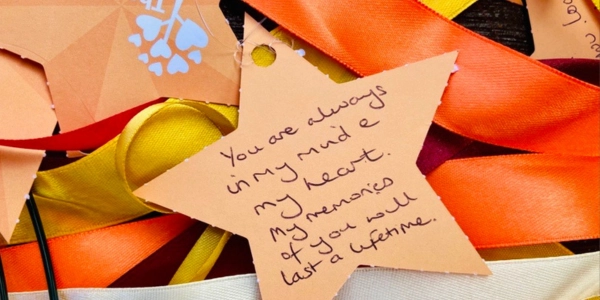 You are always
in my mind e
my heart.
My memories
of you will
last a lifetime.
you